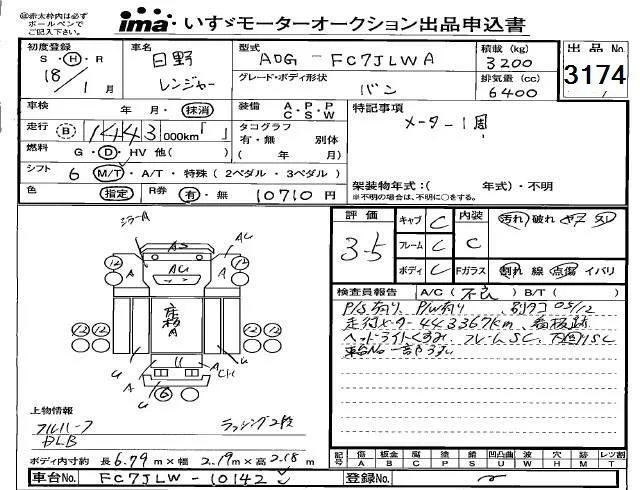 ※赤太枠内は必ず
ボールペンで
ご記入下さい。
ima いすゞモーターオークション出品申込書
初度登録 S・H・R 18/1月
車名 日野 レンジャー
型式 ADG-FC7JLWA
積載(kg) 3200
グレード・ボディ形状 バン
排気量(cc) 6400
出品No 3174
車検 年・月・抹消
装備 A・P・P C・S・W
特記事項
メーター1周
走行 B 1443 000km「 」
タコグラフ 有・無 別体
( 年 月)
燃料 G・D・HV 他( )
シフト 6 M/T・A/T・特殊(2ペダル・3ペダル)
架装物年式:( 年式)・不明
※不明の場合は、不明に○をする。
色 指定 R券 有・無 10710円
評価 3-5
キャブ C
フレーム C
ボディ C
内装 C
Fガラス
汚れ 破れ ヤブ スレ
割れ 線 点傷 イバリ
検査員報告 A/C( 不良 ) B/T( )
P/S有り、P/W有り、別タコ05/12
走行メーター443367km、看板跡
ヘッドライトくすみ、フレームSC、下回りSC
車台No一部うすい
ミラーA
AS
AU
AU
A
A
12
12
床板
A
12 12
12 12
U
U
A
A
CH
U
G
上物情報
フルハーフ
DLB
ラッシング2段
ボディ内寸約 長6.79m×幅2.19m×高2.18m
記号 傷A 板金B 腐C 塗P 錆S 凹凸曲U 波W 穴H 木M 歪Y レンズ割T
車台No. FC7JLW-10142
登録No.